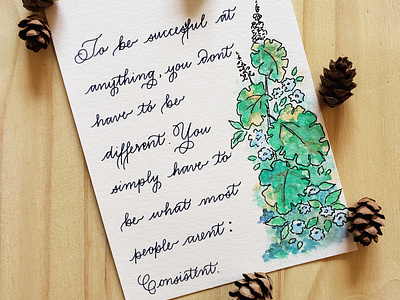 To be succesful at
anything, you dont
have to be
different. You
simply have to
be what most
people arent:
Consistent.